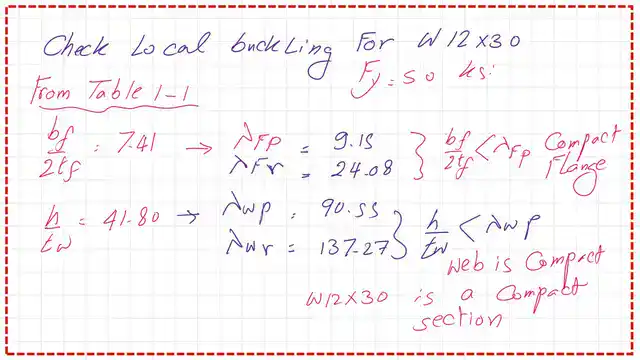 Check Local buckling For W12x30
Fy = 50 ksi
From Table 1-1
bf/2tf = 7.41 → λFp = 9.15 } bf/2tf < λFp Compact
λFr = 24.08 Flange
h/tw = 41.80 → λwp = 90.55 } h/tw < λwp
λwr = 137.27
web is Compact
W12x30 is a Compact
section